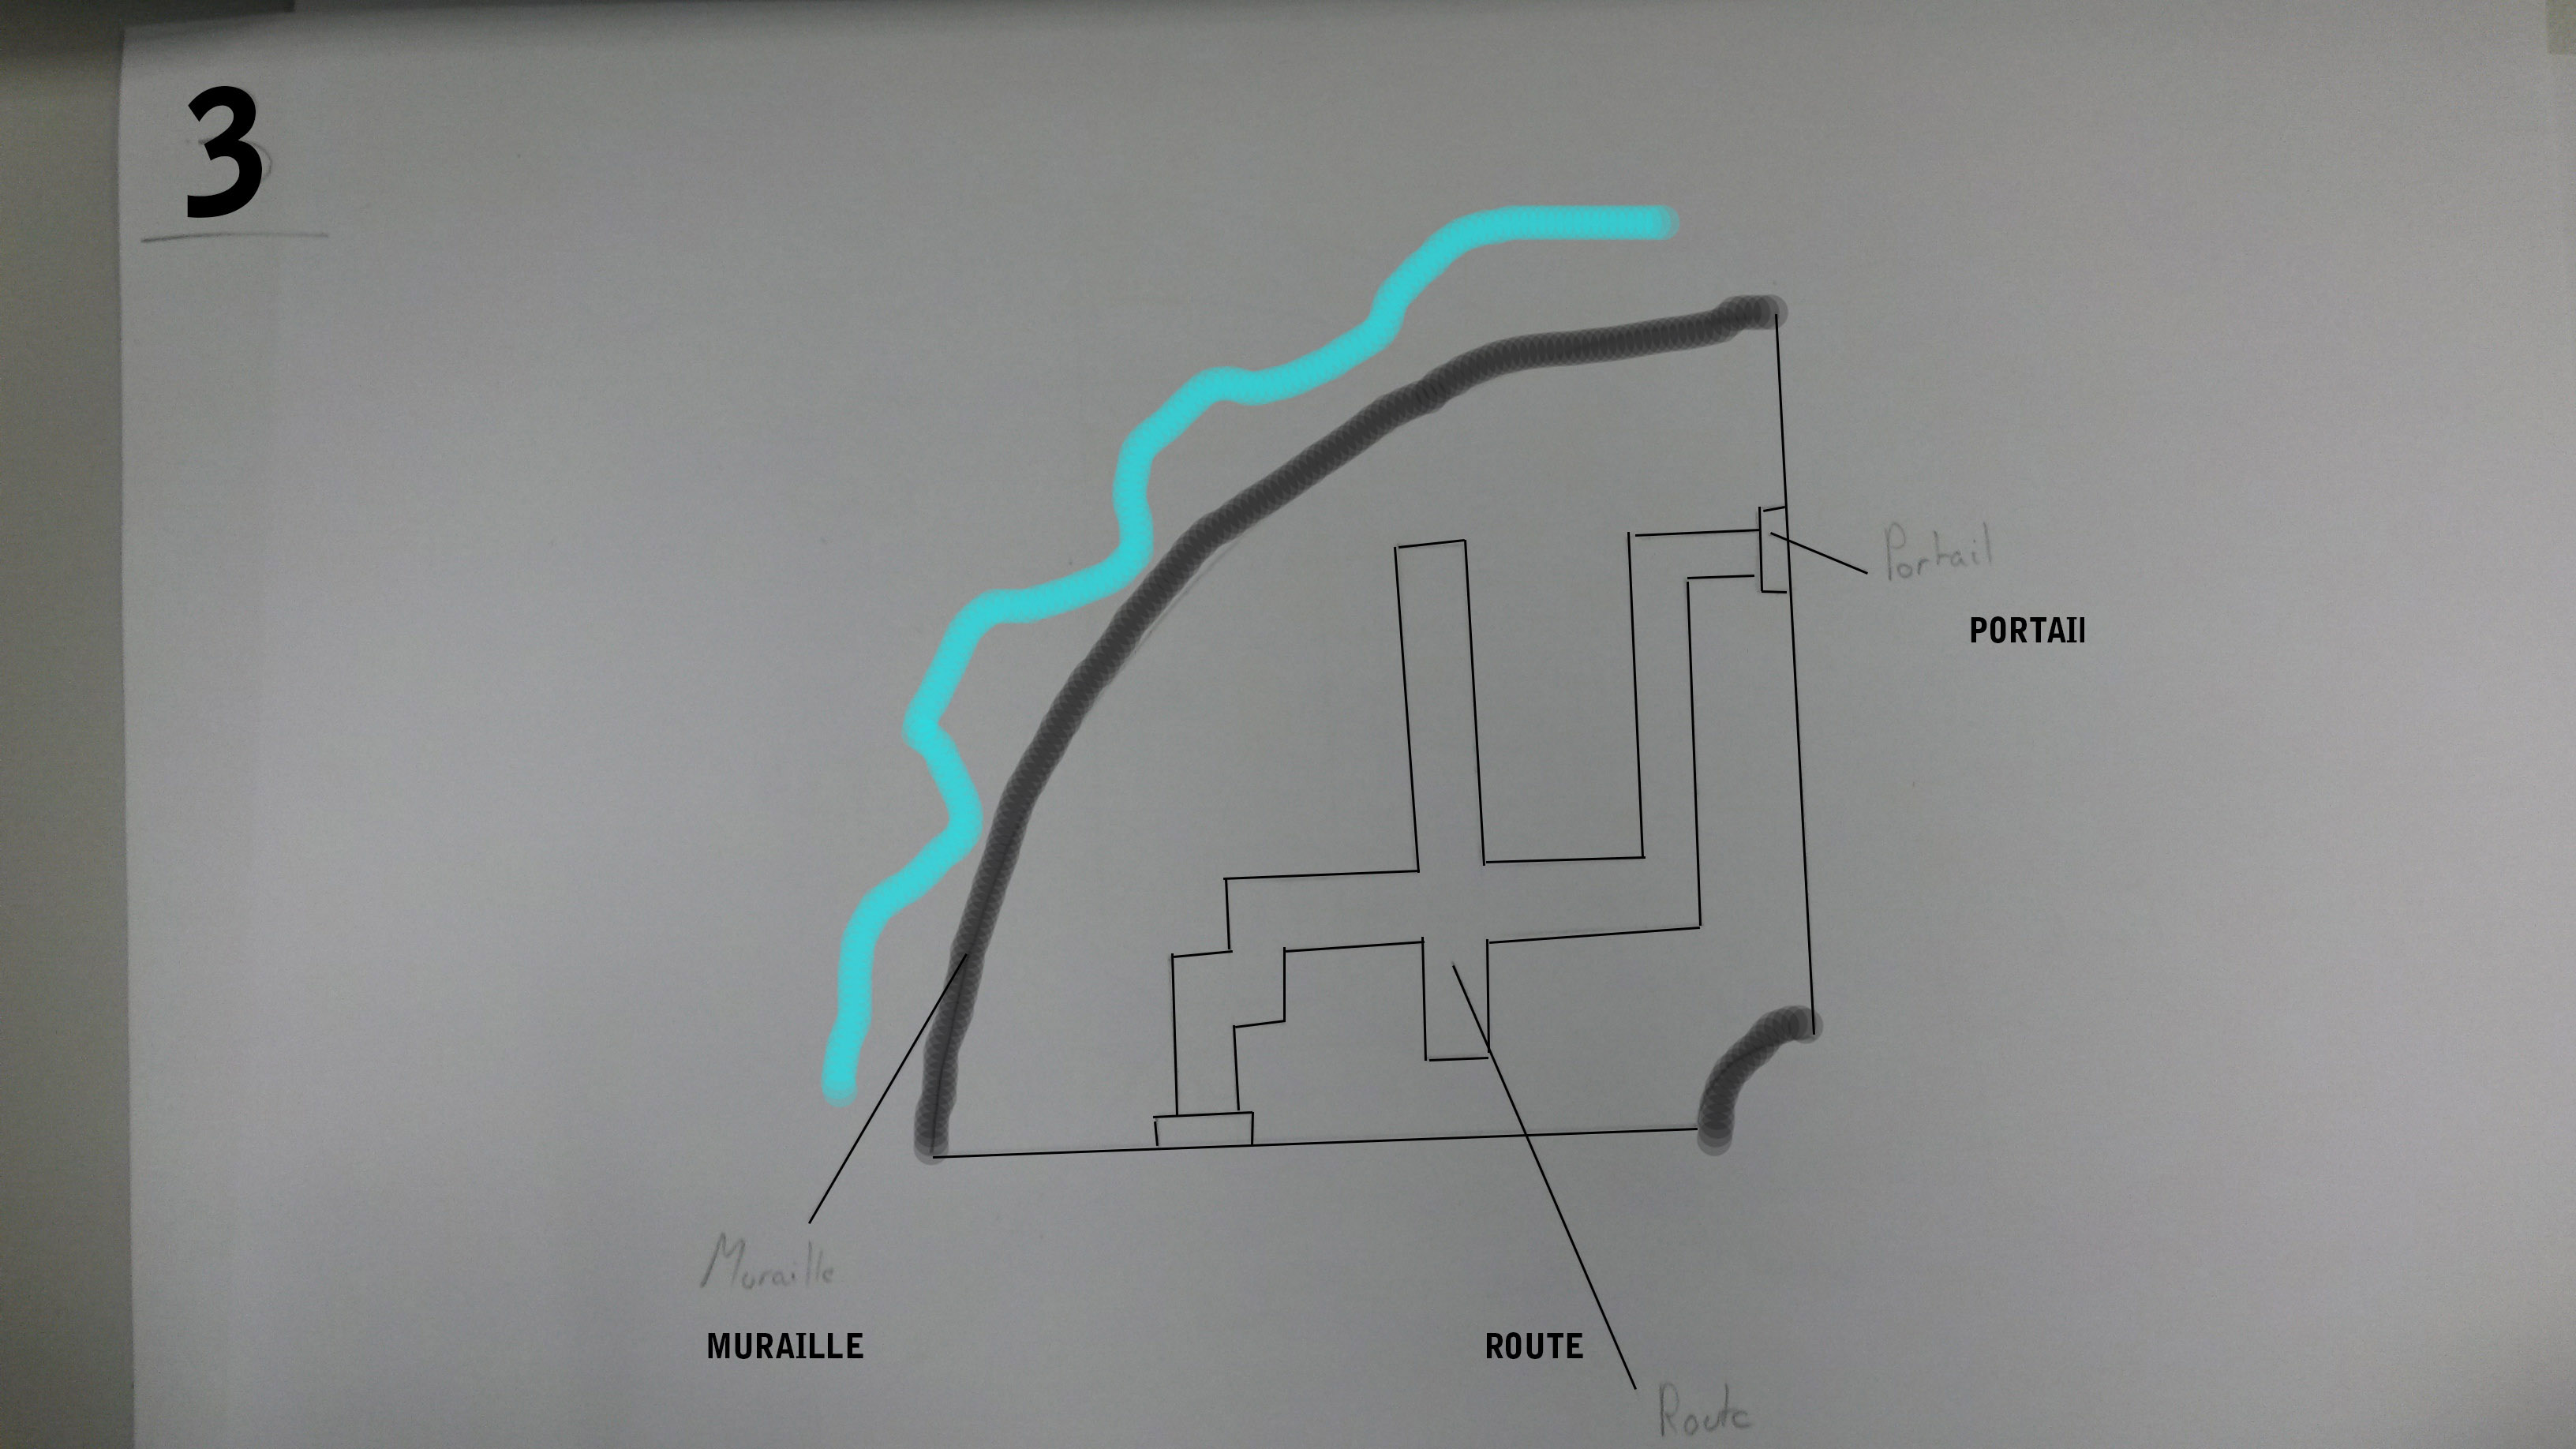 3
Portail
PORTAIl
Muraille
MURAILLE
ROUTE
Route